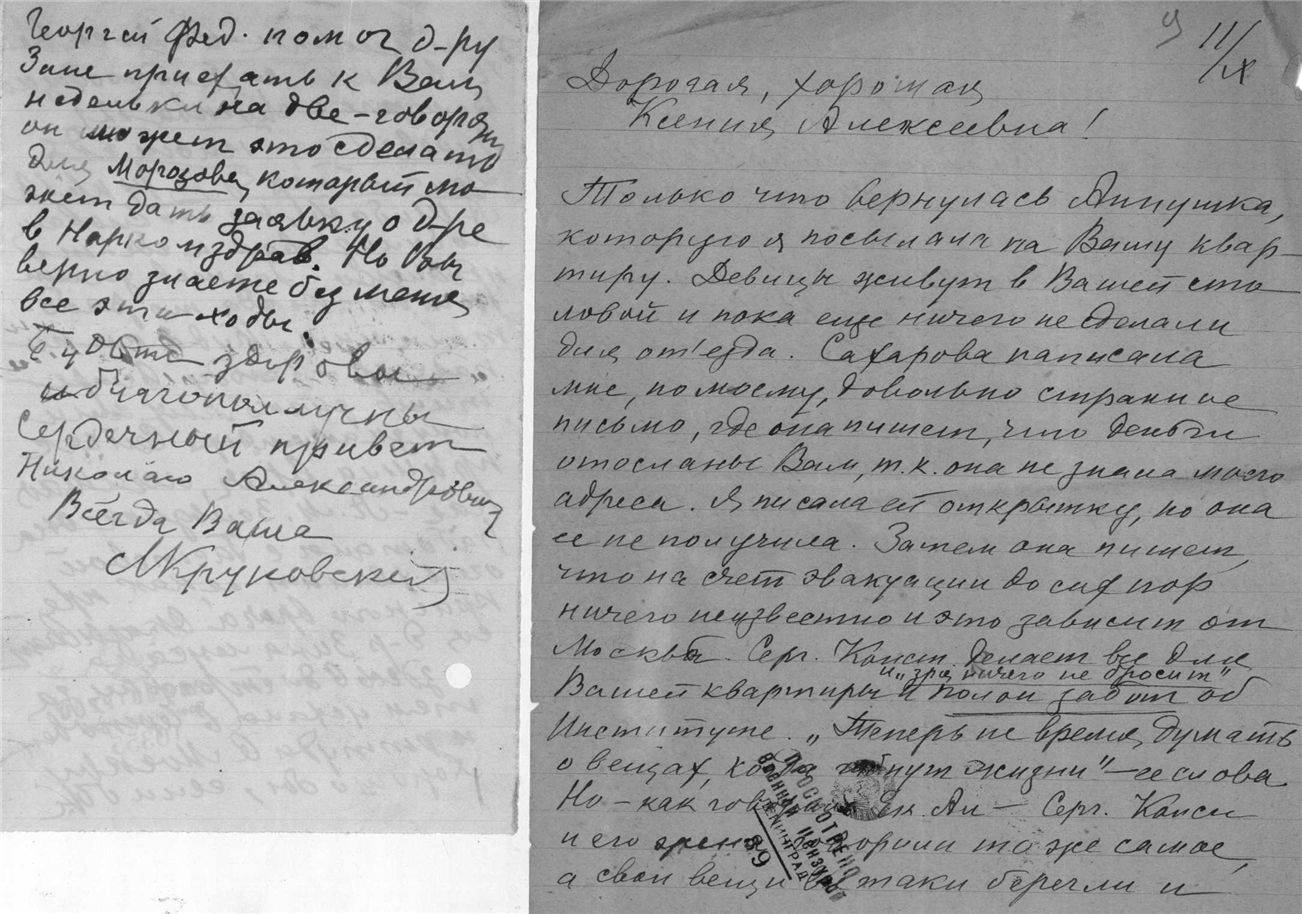 Георгий Фед. помог д-ру
Зане приехать к Вам
недельки на две – говорят
он может это сделать
для Морозовец, который мо-
жет дать заявку о д-ре
в Наркомздрав. Но Вы
верно знаете без меня
все эти ходы.
Будьте здоровы
и благополучны
Сердечный привет
Николаю Александровичу
Всегда Ваша
МКруковская
9 11/IX
Дорогая, хорошая
Ксения Алексеевна!
Только что вернулась Аннушка,
которую я посылала на Вашу квар-
тиру. Девицы живут в Вашей сто-
ловой и пока еще ничего не сделали
для от'езда. Сахарова написала
мне, по моему, довольно странное
письмо, где она пишет, что деньги
отосланы Вам, т.к. она не знала моего
адреса. Я писала ей открытку, но она
ее не получила. Затем она пишет,
что на счет эвакуации до сих пор
ничего неизвестно и это зависит от
Москвы. Серг. Конст. делает все для
и "зря ничего не бросит"
Вашей квартиры и полон забот об
Институте. "Теперь не время думать
о вещах, гибнут жизни" – ее слова
Но – как Ек. Ал – Серг. Конст
и его жена говорили то же самое,
а свои вещи таки берегли и
ПРОСМОТРЕНО
ВОЕННОЙ ЦЕНЗУРОЙ
ЛЕНИНГРАД
89